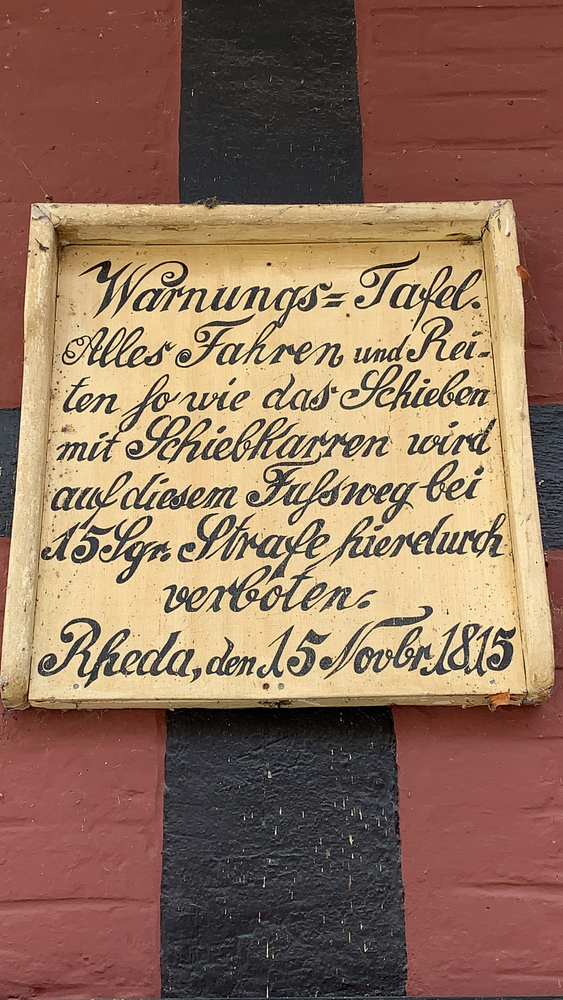 Warnungs=Tafel.
Alles Fahren und Rei-
ten so wie das Schieben
mit Schiebkarren wird
auf diesem Fußsweg bei
15 Sgr. Strafe hierdurch
verboten.
Rheda, den 15 Novbr. 1815